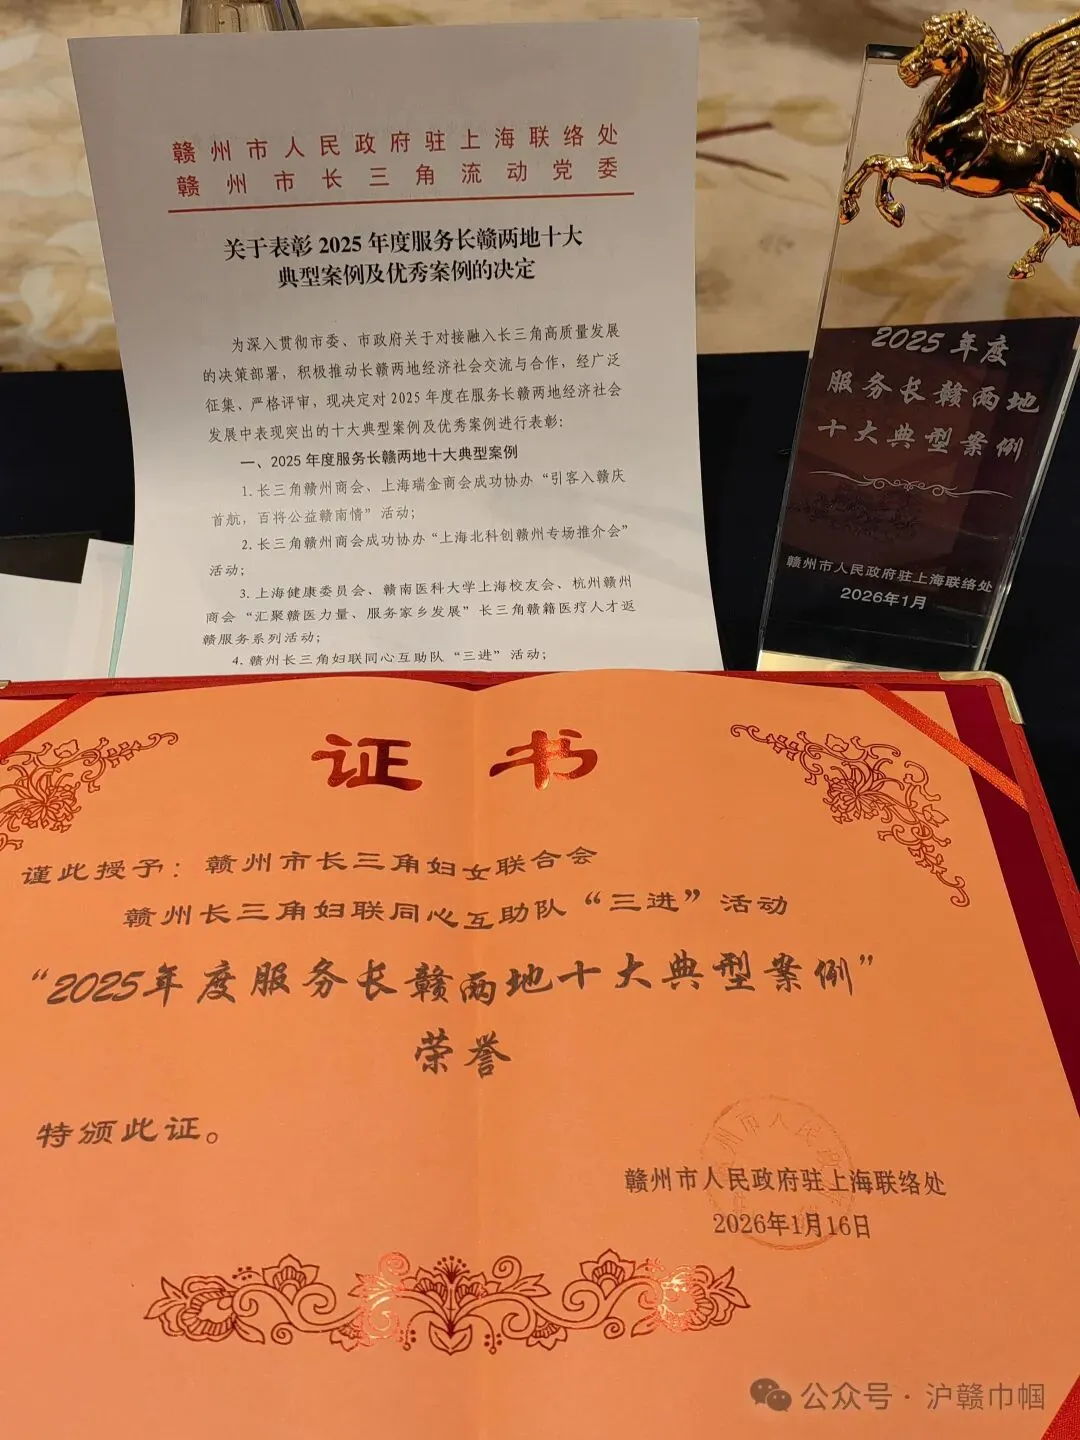 赣州市人民政府驻上海联络处
赣州市长三角流动党委
关于表彰 2025 年度服务长赣两地十大
典型案例及优秀案例的决定
为深入贯彻市委、市政府关于对接融入长三角高质量发展
的决策部署，积极推动长赣两地经济社会交流与合作，经广泛
征集、严格评审，现决定对 2025 年度在服务长赣两地经济社会
发展中表现突出的十大典型案例及优秀案例进行表彰：
一、2025 年度服务长赣两地十大典型案例
1. 长三角赣州商会、上海瑞金商会成功协办“引客入赣庆
首航，百将公益赣南情”活动；
2. 长三角赣州商会成功协办“上海北科创赣州专场推介会”
活动；
3. 上海健康委员会、赣南医科大学上海校友会、杭州赣州
商会“汇聚赣医力量、服务家乡发展”长三角赣籍医疗人才返
赣服务系列活动；
4. 赣州长三角妇联同心互助队“三进”活动；
2025年度
服务长赣两地
十大典型案例
赣州市人民政府驻上海联络处
2026年1月
证书
谨此授予：赣州市长三角妇女联合会
赣州长三角妇联同心互助队“三进”活动
“2025年度服务长赣两地十大典型案例”
荣誉
特颁此证。
赣州市人民政府驻上海联络处
2026年1月16日
公众号·沪赣巾帼